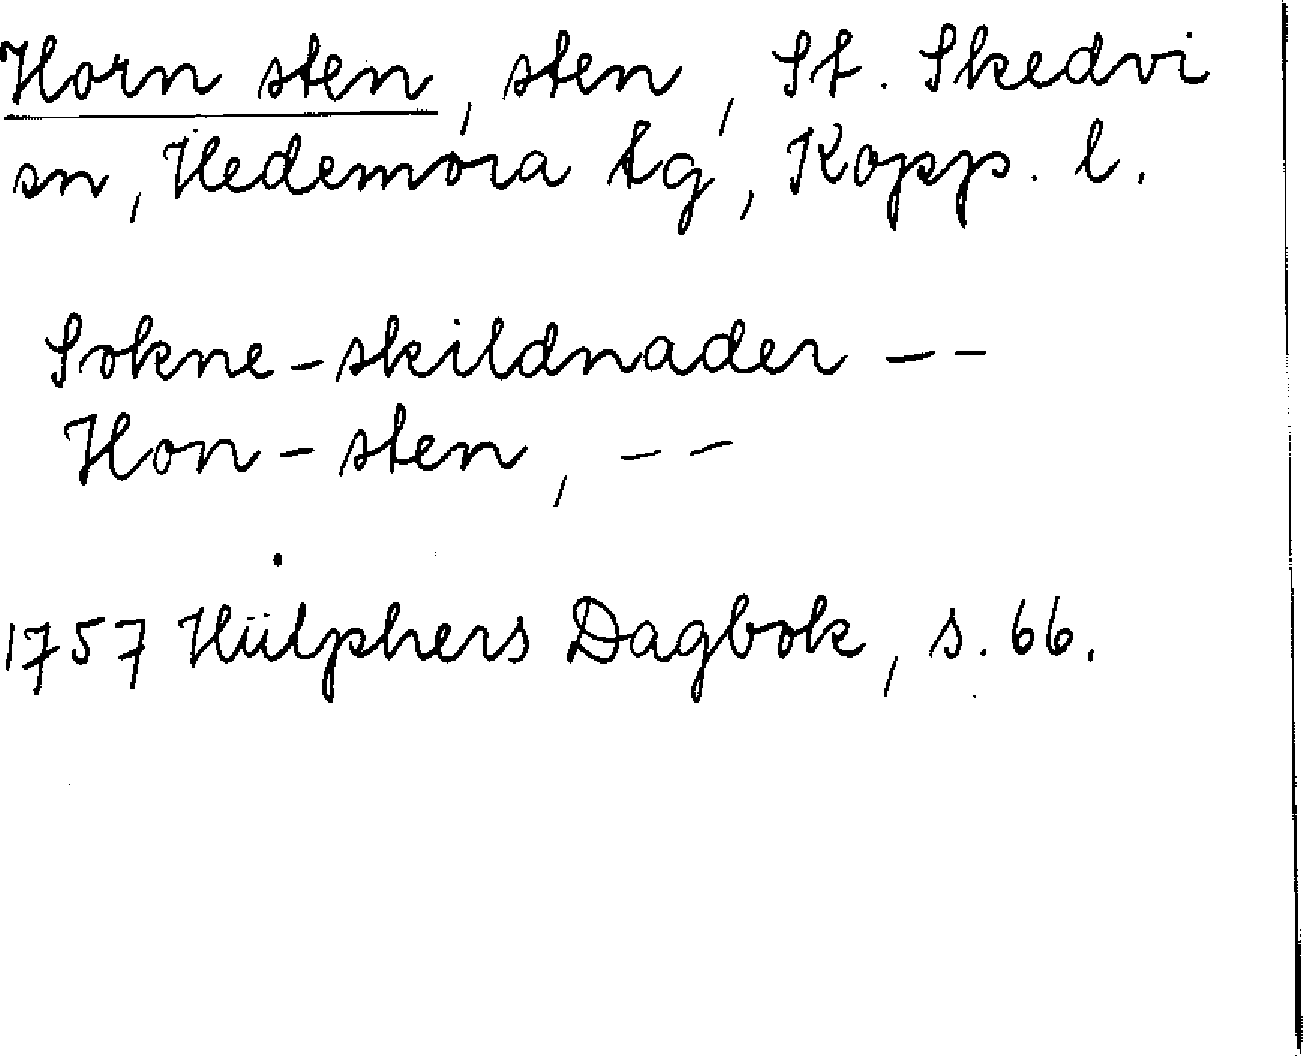 Horn sten, sten, St. Skedvi
sn, Hedemora tg, Kopp. l.
Sokne-skildnader --
Hon-sten, --
1757 Hülphers Dagbok, s. 66.